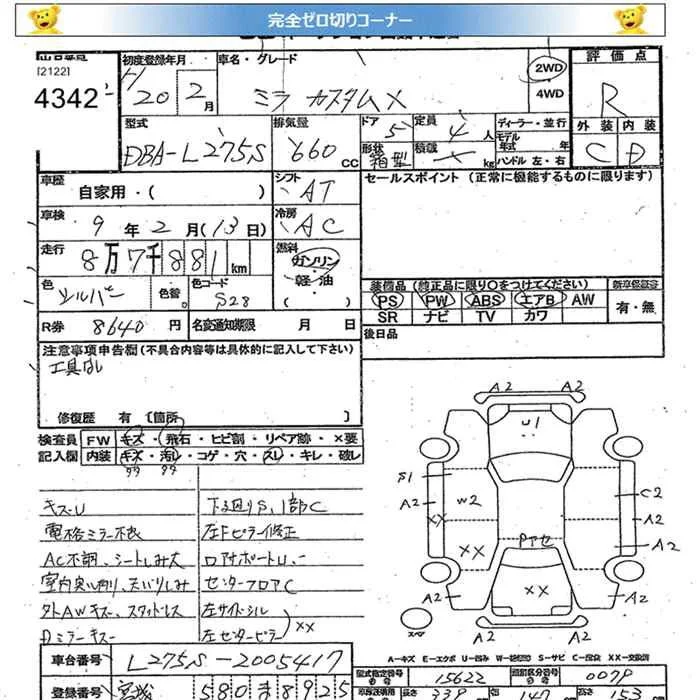 完全ゼロ切りコーナー
[2122]
初度登録年月
車名・グレード
評価点
4342
H 20 2月
ミラ カスタムX
2WD
4WD
R
型式
排気量
ドア
定員
ディーラー・並行
外装 内装
DBA-L275S
660 cc
5
4 人
モデル年式 年
C D
形状
箱型
積載
kg
ハンドル 左・右
車歴
自家用・( )
シフト
AT
セールスポイント (正常に機能するものに限ります)
車検
9年 2月(13日)
冷房
AC
走行
8万7千881km
燃料
ガソリン
・軽油
( )
色
シルバー
色替
色コード
S28
装備品 (純正品に限り○をつけてください)
新車保証書
PS PW ABS エアB AW
SR ナビ TV カワ
有・無
R券 8640円
名変通知期限 月 日
後日品
注意事項申告欄 (不具合内容等は具体的に記入して下さい)
工具なし
修復歴 有 〔箇所 〕
検査員記入欄
FW キズ・飛石・ヒビ割・リペア跡・×要
内装 キズ・汚レ・コゲ・穴・スレ・キレ・破レ
キズU
下廻りS、1部C
電格ミラー不良
左Fピラー修正
AC不調、シートしみ大
ロアサポートU
センターフロアC
外AWキズ、スタッドレス
左サイドシル
Dミラーキズ
左センターピラー
XX
A2 A2
U1
S1
A2
W2
C2
XX
A2
XX
A2
XX
A2
A2
A2 A2
スペア
A-キズ E-エクボ U-凹み W-補修跡 S-サビ C-腐食 XX-交換済
車台番号 L275S-2005417
型式指定番号
15622
類別区分番号
0079
登録番号 宮城 580 ま 8925
長さ
339
幅
147